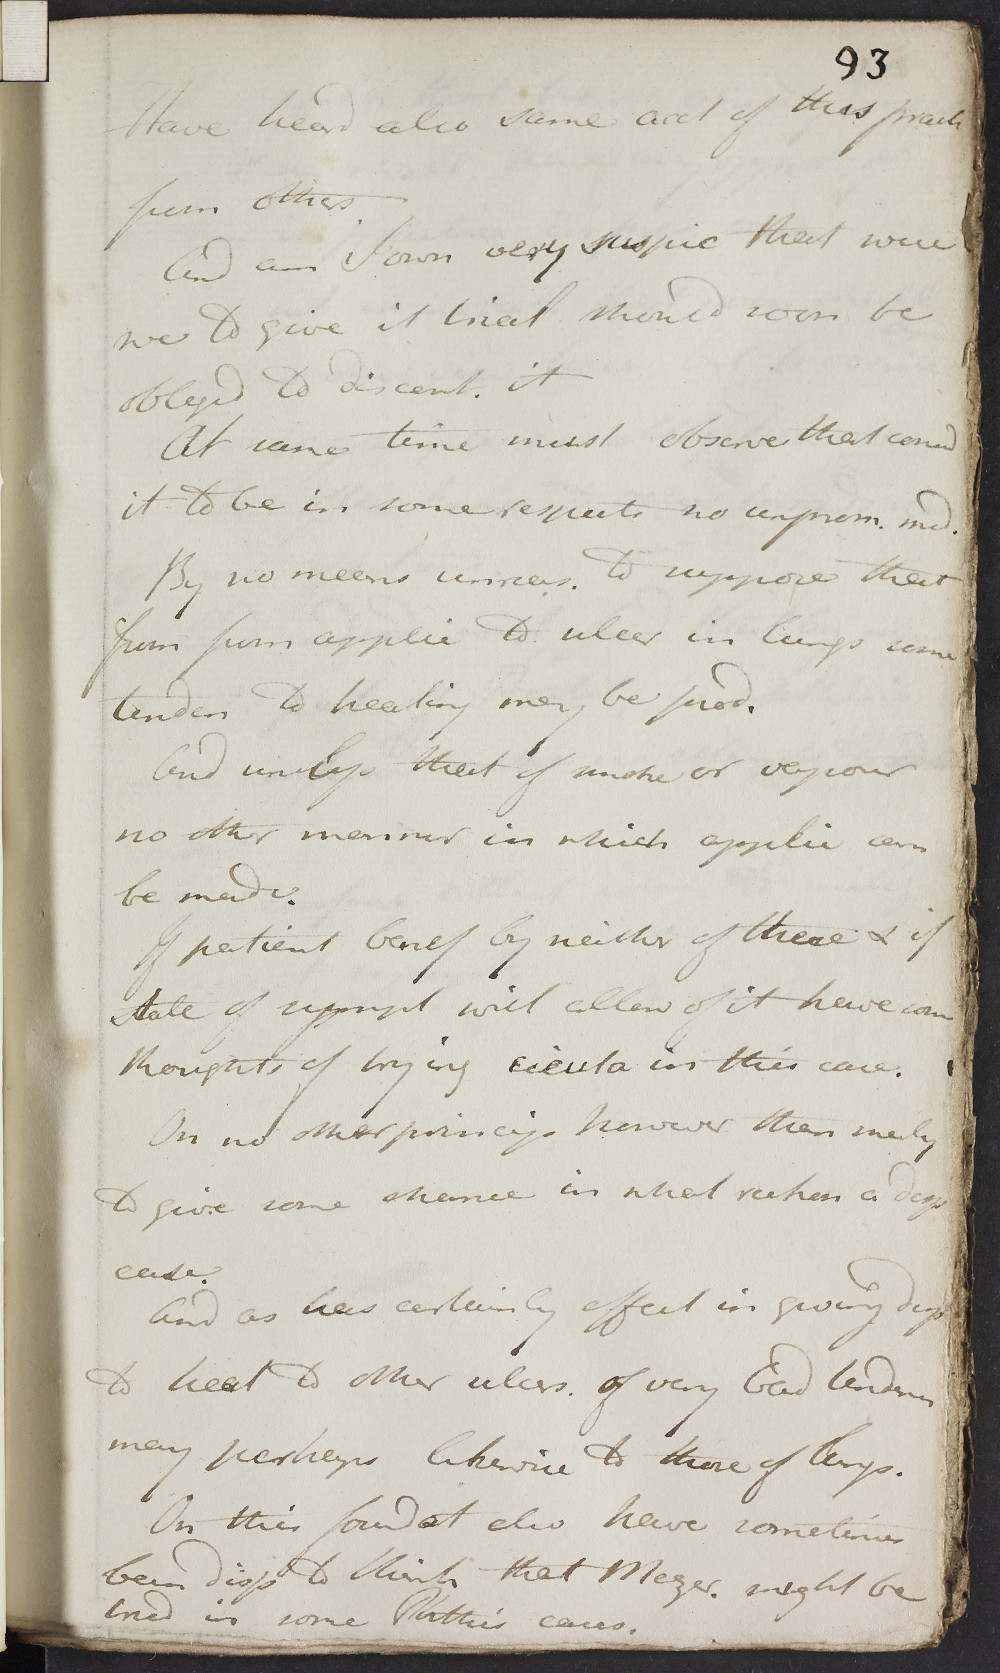 93
Have heard also same acct of this pract
from others.
And am I own very suspic that were
we to give it trial should soon be
obleged to discont. it
At same time must observe that consid
it to be in some respects no unprom. med.
By no means unreas. to suppose that
from some applic to ulcer in lungs some
tenden to healing may be prod.
And unless that of smoke or vapour
no other manner in which applic can
be made.
If patient benef by neither of these & if
state of sympt will allow of it have some
thoughts of trying cicuta in this case.
On no other princip however than merely
to give some chance in what reckon a desp
case.
And as has certainly effect in giving disp
to heal to other ulcers. of very bad tenden
may perhaps likewise to those of lungs.
On this foundat also have sometimes
been disp to think that Mezer. might be
tried in some Phthis cases.